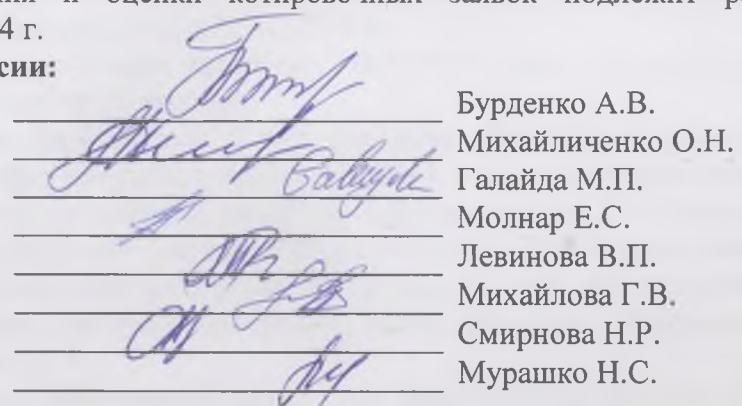 и оценки котировочных заявок подлежит
4 г.
сии:
Бурденко А.В.
Михайличенко О.Н.
Галайда М.П.
Молнар Е.С.
Левинова В.П.
Михайлова Г.В.
Смирнова Н.Р.
Мурашко Н.С.